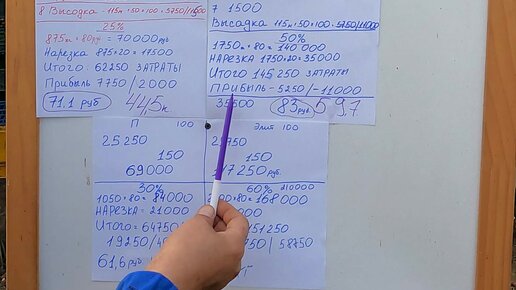 8 Высадка - 115м·50×100·5750/1150
25%
875м × 80руб = 70000руб
Нарезка 875×20 = 17500
Итого 62250 ЗАТРАТЫ
Прибыль 7750/2000
71.1 руб 44,5к.
7 1500
Высадка
115м·50×100·5750/11000
50%
1750м × 80 = 140000
НАРЕЗКА 1750×20 = 35000
Итого 145250 ЗАТРАТЫ
ПРИБЫЛЬ - 5250/-11000
35500 83руб 59,7
П 100
25250
150
69000
30%
1050×80 = 84000
НАРЕЗКА = 21000
Итого = 64750
19250/
61,6 руб
Элит 100
150
7250руб.
60% 210000
×80 = 168000
000
51250
750/58750